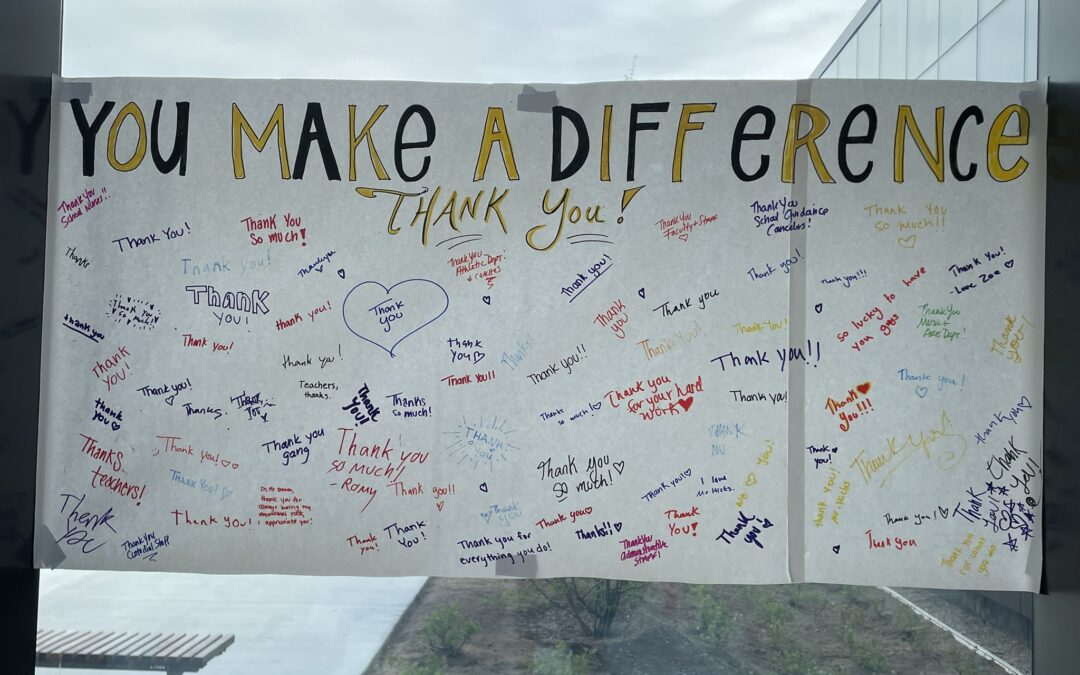 YOU MAKE A DIFFERENCE
THANK YOU!
Thank You
School Nurses!!
Thank You!
Thank You
so much!
Thank You
Faculty + Staff
Thank You
School Guidance
Thank You
so much!!
Thanks
Thank you!
Thank You
Athletic Dept.
+ coaches
Thank you!!
Thank you!
Thank you!!!
Thank You!
-Love Zoe
Thank
you!
thank you!
Thank
you
Thank
you
Thank you
so lucky to have
you guys
Thank You
Music +
Arts Dept!
Thank
you!
Thank you
so much!
thank you
Thank you!
thank you!
thank
you
Thanks!
Thank you!!
Thank you!
Thank you!
Thank you!!
Thank
you!
Thank you!
Teachers,
thanks.
Thank you!!
Thank you
for your hard
work
Thank you!
Thank you!
thank
you
Thanks.
Thank
you!
Thanks
so much!
Thanks
so much!
Thank
you!!!
thank you
Thanks
teachers!
Thank you!
Thank you
gang
Thank you
so much!!
- Romy
THANK
YOU
THANK
YOU
Thank
you!
Thank you!
Thank You!
Thank you
so much!
Thank you!
I love
Mr Hicks.
thank you!
Mr. Hicks
Thank
you!
Thank
you!
thank you for
always being my
emotional rock,
I appreciate you!
Thank you!!
Thank
you
Thank you!
Thank you
Custodial Staff
Thank
you!
Thank
You!
Thank you
Thank you
Thanks!!
Thank
You!
Thank
you!
Thank you!
Thank you
Thank you for
everything you do!
Thank you
administrative
staff!
Thank you
for what
you do